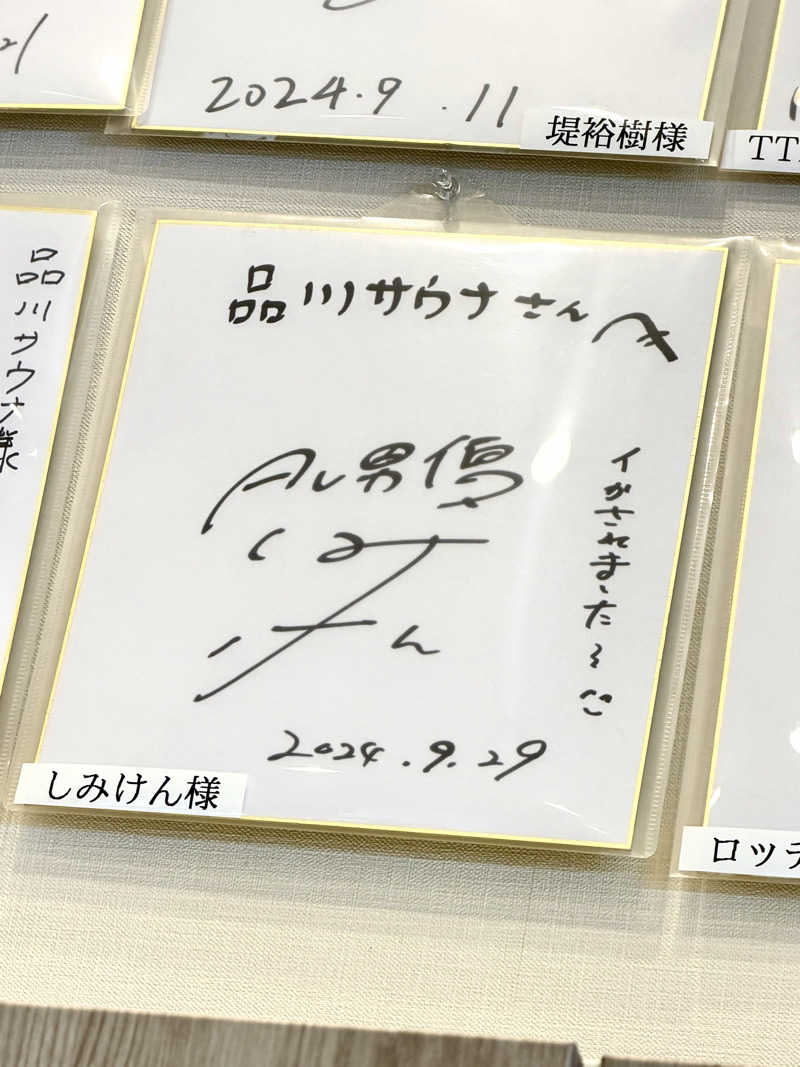 21
2024.9.11
堤裕樹様
TT
品川サウナ様
品川サウナさんへ
AV男優
しみけん
イかされました
2024.9.29
しみけん様
ロッチ